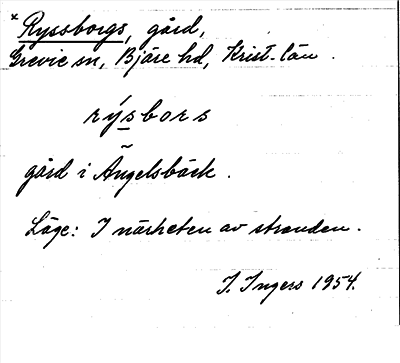 * Ryssborgs, gård,
Grevie sn, Bjäre hd, Krist-län.
rýsbors
gård i Ängelsbäck.
Läge: I närheten av stranden.
I. Ingers 1954.